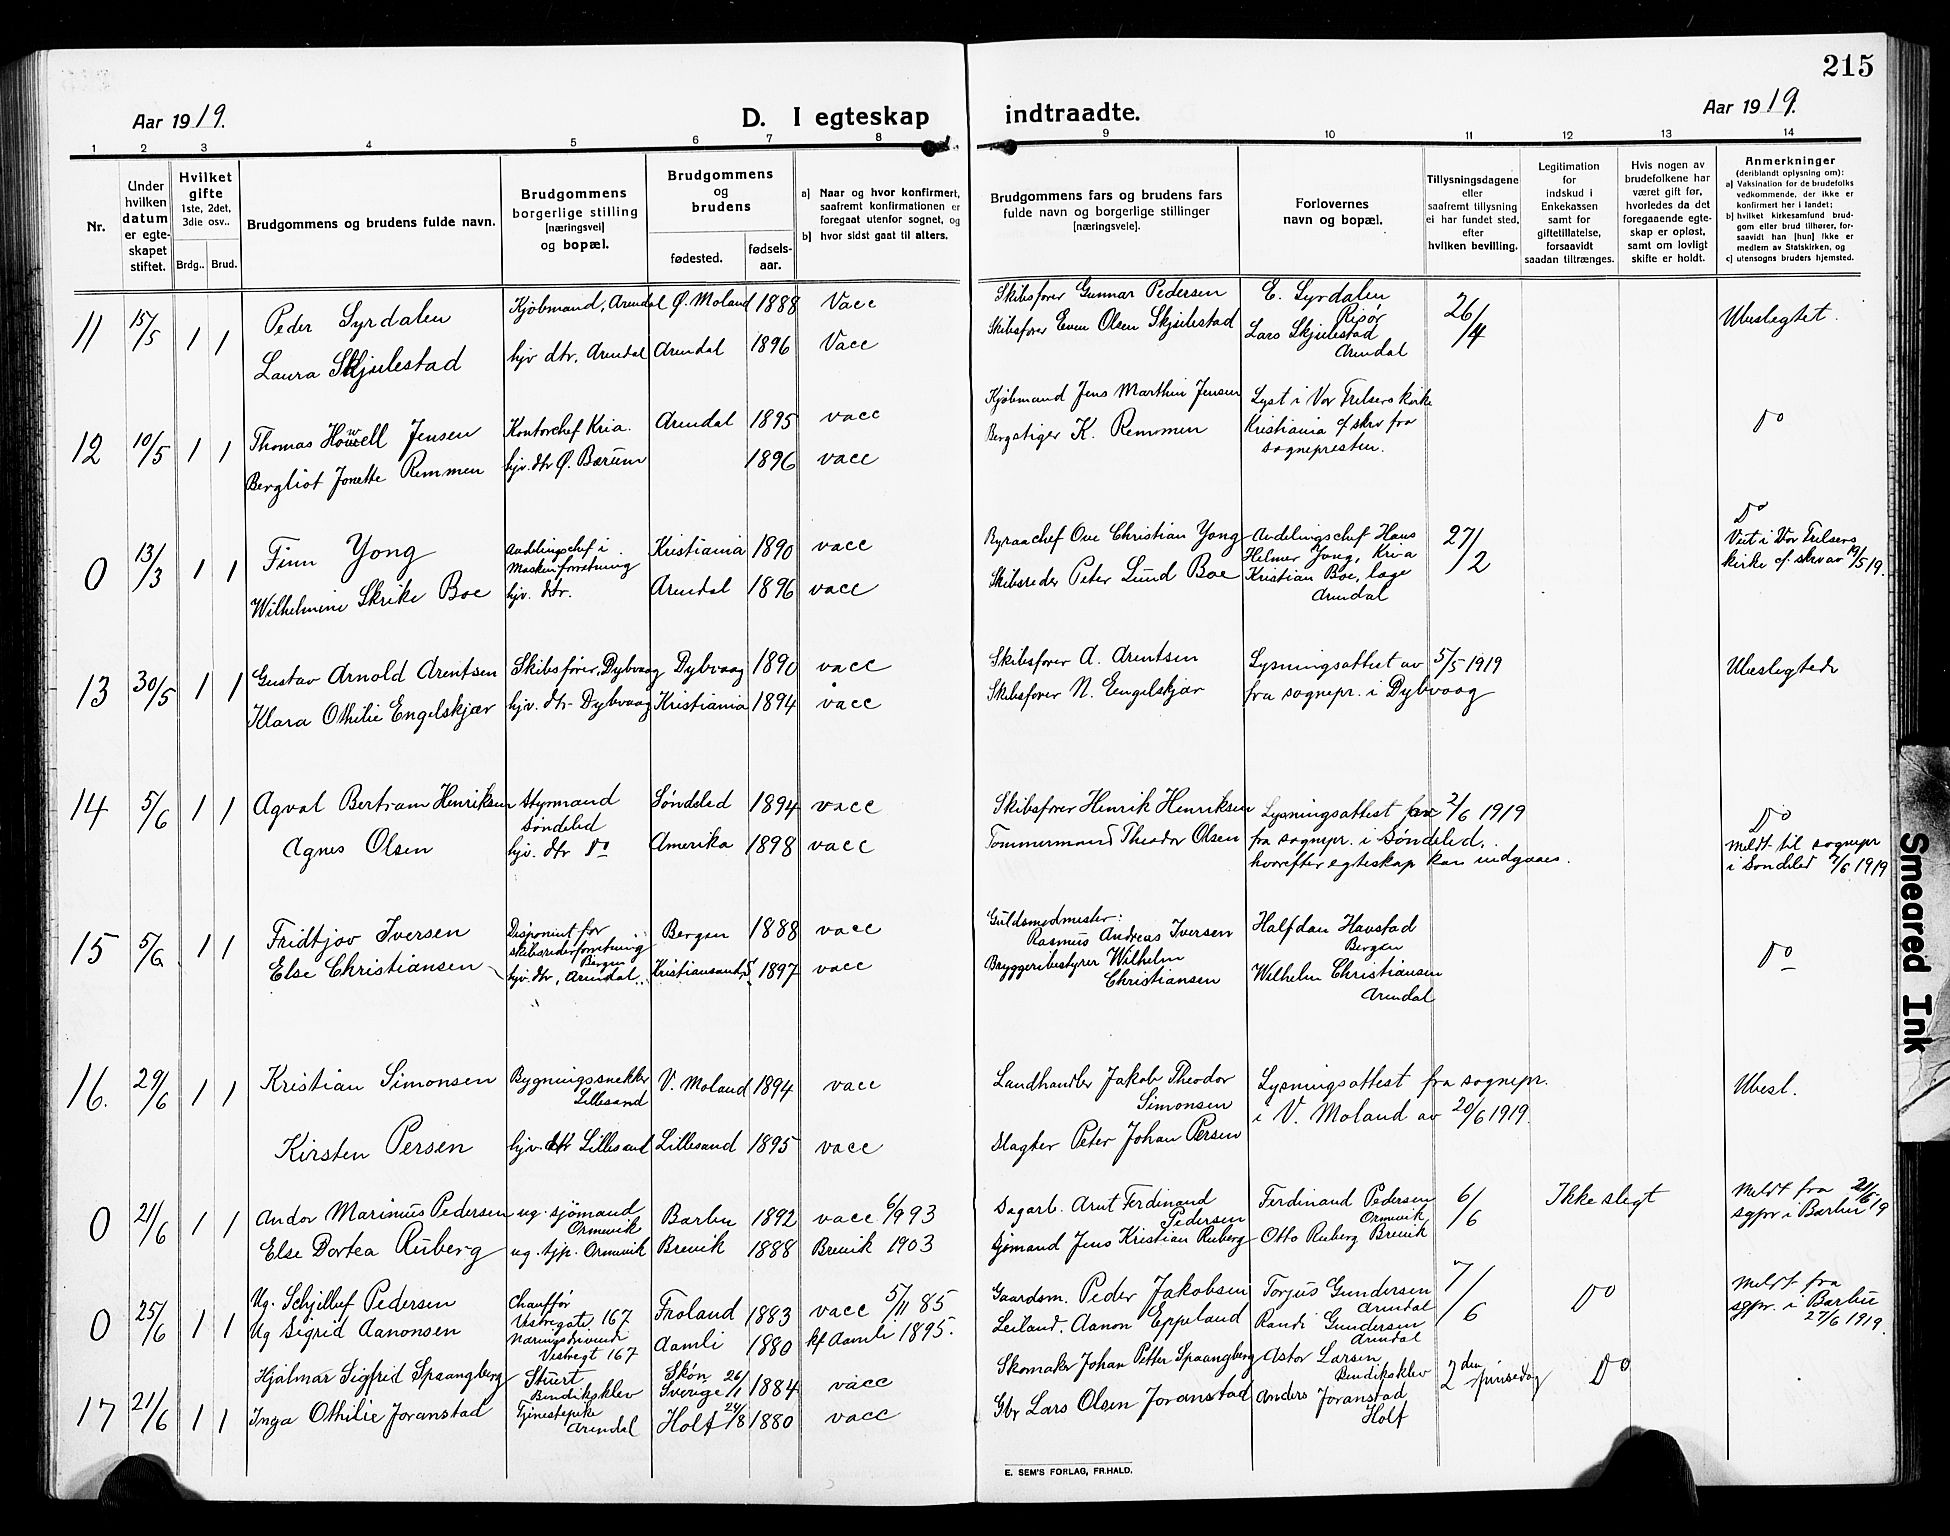 215
Aar 1919.
D. I egteskap indtraadte.
Aar 1919.
1 2 3 4 5 6 7 8 9 10 11 12 13 14
Nr.
Under hvilken datum er egteskapet stiftet.
Hvilket gifte 1ste, 2det, 3die osv..
Brdg.. Brud.
Brudgommens og brudens fulde navn.
Brudgommens borgerlige stilling [næringsvei] og bopæl.
Brudgommens og brudens
fødested.
fødselsaar.
a) Naar og hvor konfirmert, saafremt konfirmationen er foregaat utenfor sognet, og
b) hvor sidst gaat til alters.
Brudgommens fars og brudens fars fulde navn og borgerlige stillinger [næringsveie].
Forlovernes navn og bopæl.
Tillysningsdagene eller saafremt tillysning ei har fundet sted, efter hvilken bevilling.
Legitimation for indskud i Enkekassen samt for giftetillatelse, forsaavidt saadan tiltrænges.
Hvis nogen av brudefolkene har været gift før, hvorledes da det foregaaende egteskap er opløst, samt om lovligt skifte er holdt.
Anmerkninger (deriblandt oplysning om):
a) Vaksination for de brudefolks vedkommende, der ikke er konfirmert her i landet;
b) hvilket kirkesamfund brudgom eller brud tilhører, forsaavidt han [hun] ikke er medlem av Statskirken, og
c) utensogns bruders hjemsted.
11 15/5 1 1 Peder Lyrdalen Kjøbmand, Arendal Ø. Moland 1888 Vacc Skibsfører Gunnar Pedersen E. Lyrdalen Risør 26/4 Ubeslegtet.
Laura Skjulestad hjv dtr, Arendal Arendal 1896 Vacc Skibsfører Even Olsen Skjulestad Lars Skjulestad Arendal
12 10/5 1 1 Thomas Howell Jensen Kontorchef Kria. Arendal 1895 vacc Kjøbmand Jens Marthin Jensen Lyst i Vor Frelsers kirke Do
Bergliot Jonette Remmen hjv. dtr Ø. Bærum 1896 vacc Bergstiger K. Remmen Kristiania cf skr fra sognepresten.
0 13/3 1 1 Finn Yong Avdelingschef i Maskinforretning Kristiania 1890 vacc Byraachef Ove Christian Yong Avdelingschef Hans Helmer Yong, Kria 27/2 Do Viet i Vor Frelsers kirke cf. skr av 19/5 19.
Wilhelmine Skrike Boe hjv. dtr. Arendal 1896 vacc Skibsreder Peter Lund Boe Kristian Boe, læge Arendal
13 30/5 1 1 Gustav Arnold Arentsen Skibsfører, Dybvaag Dybvaag 1890 vacc Skibsfører A. Arentsen Lysningsattest av 5/5 1919 Ubeslegtede
Klara Othilie Engelskjær hjv. dtr. Dybvaag Kristiania 1894 vacc Skibsfører N. Eengelskjær fra sognepr. i Dybvaag
14 5/6 1 1 Agval Bertram Henriksen Styrmand Søndeled Søndeled 1894 vacc Skibsfører Henrik Henriksen Lysningsattest av 2/6 1919 Do
Agnes Olsen hjv. dtr Do Amerika 1898 vacc Tømmermand Theodor Olsen fra sognepr. i Søndeled, hvorefter egteskap kan indgaaes. Meldt til sognepr i Søndeled 7/6 1919
15 5/6 1 1 Fridtjov Iversen Disponent for skibsrederforretning Bergen Bergen 1888 vacc Guldsmedmester: Rasmus Andreas Iversen Halfdan Havstad Bergen Do
Else Christiansen hjv. dtr, Arendal. Kristiansand S. 1897 vacc Bryggeribestyrer Wilhelm Christiansen Wilhelm Christiansen Arendal
16. 29/6 1 1 Kristian Simonsen Bygningssnekker Lillesand V. Moland 1894 vacc Landhandler Jakob Theodor Simonsen Lysningsattest fra sognepr. i V. Moland av 20/6 1919. Ubesl.
Kirsten Persen hjv. dtr Lillesand Lillesand 1895 vacc Slagter Peter Johan Persen
0 21/6 1 1 Andor Marinius Pedersen ug. sjømand Ormevik Barbu 1892 vacc 6/9 93 Dagarb. Arnt Ferdinand Pedersen Ferdinand Pedersen Ormevik 6/6 Ikke slegt Meldt fra sgpr i Barbu 21/6 19
Else Dortea Ruberg ug. tjp. Ormevik Brevik 1888 Brevik 1903 Sjømand Jens Kristian Ruberg Otto Ruberg Brevik
0 25/6 1 1 Ug. Schjellef Pedersen Chauffør Vestregate 167 Froland 1883 vacc 5/11 85 Gaardsm. Peder Jakobsen Torjus Gundersen Arendal 7/6 Do Meldt fra sgpr. i Barbu 27/6 1919.
Ug Sigrid Aanonsen Næringsdrivende Vestregt 167 Aamli 1880 kf Aamli 1895. Leiland. Aanon Eppeland Randi Gundersen Arendal
17 21/6 1 1 Hjalmar Sigfrid Spaangberg Stuert Bendiksklev Skøn Sverige 26/1 1884 vacc Skomaker Johan Petter Spaangberg Astor Larsen Bendiksklev 2den pinsedag Do
Inga Othilie Joranstad Tjenestepike Arendal Holt 24/8 1880 vacc Gbr Lars Olsen Joranstad Anders Joranstad Holt
E. SEM'S FORLAG, FR.HALD.
Smeared Ink